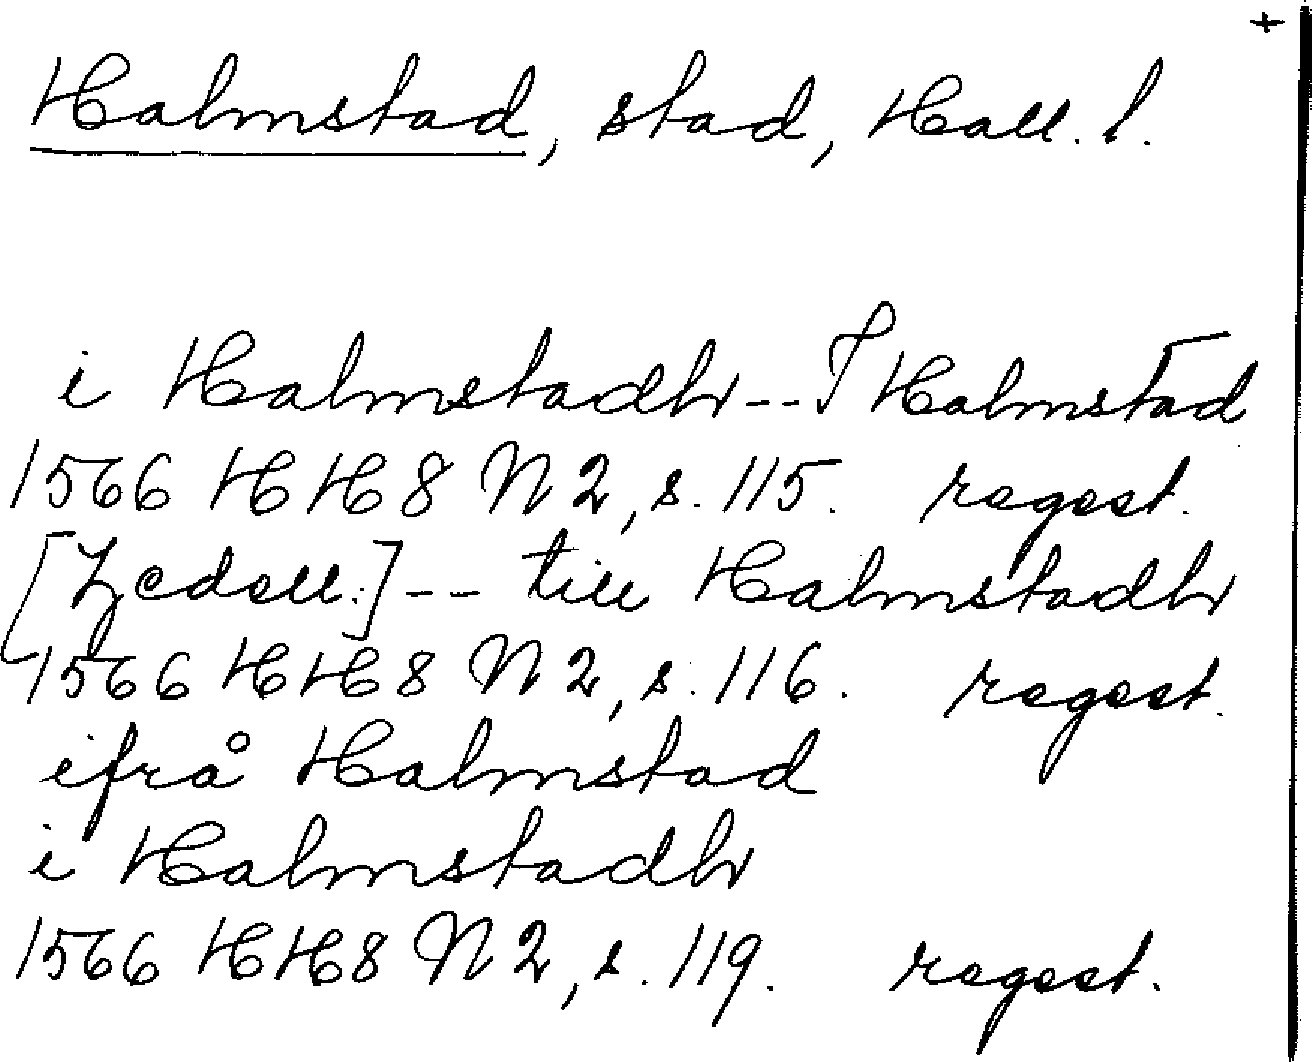 +
Halmstad, stad, Hall. l.
i Halmstadh -- J Halmstad
1566 HH 8 N 2, s. 115. regest.
[Zedell.] -- till Halmstadh
1566 HH 8 N 2, s. 116. regest.
ifrå Halmstad
i Halmstadh
1566 HH 8 N 2, s. 119. regest.